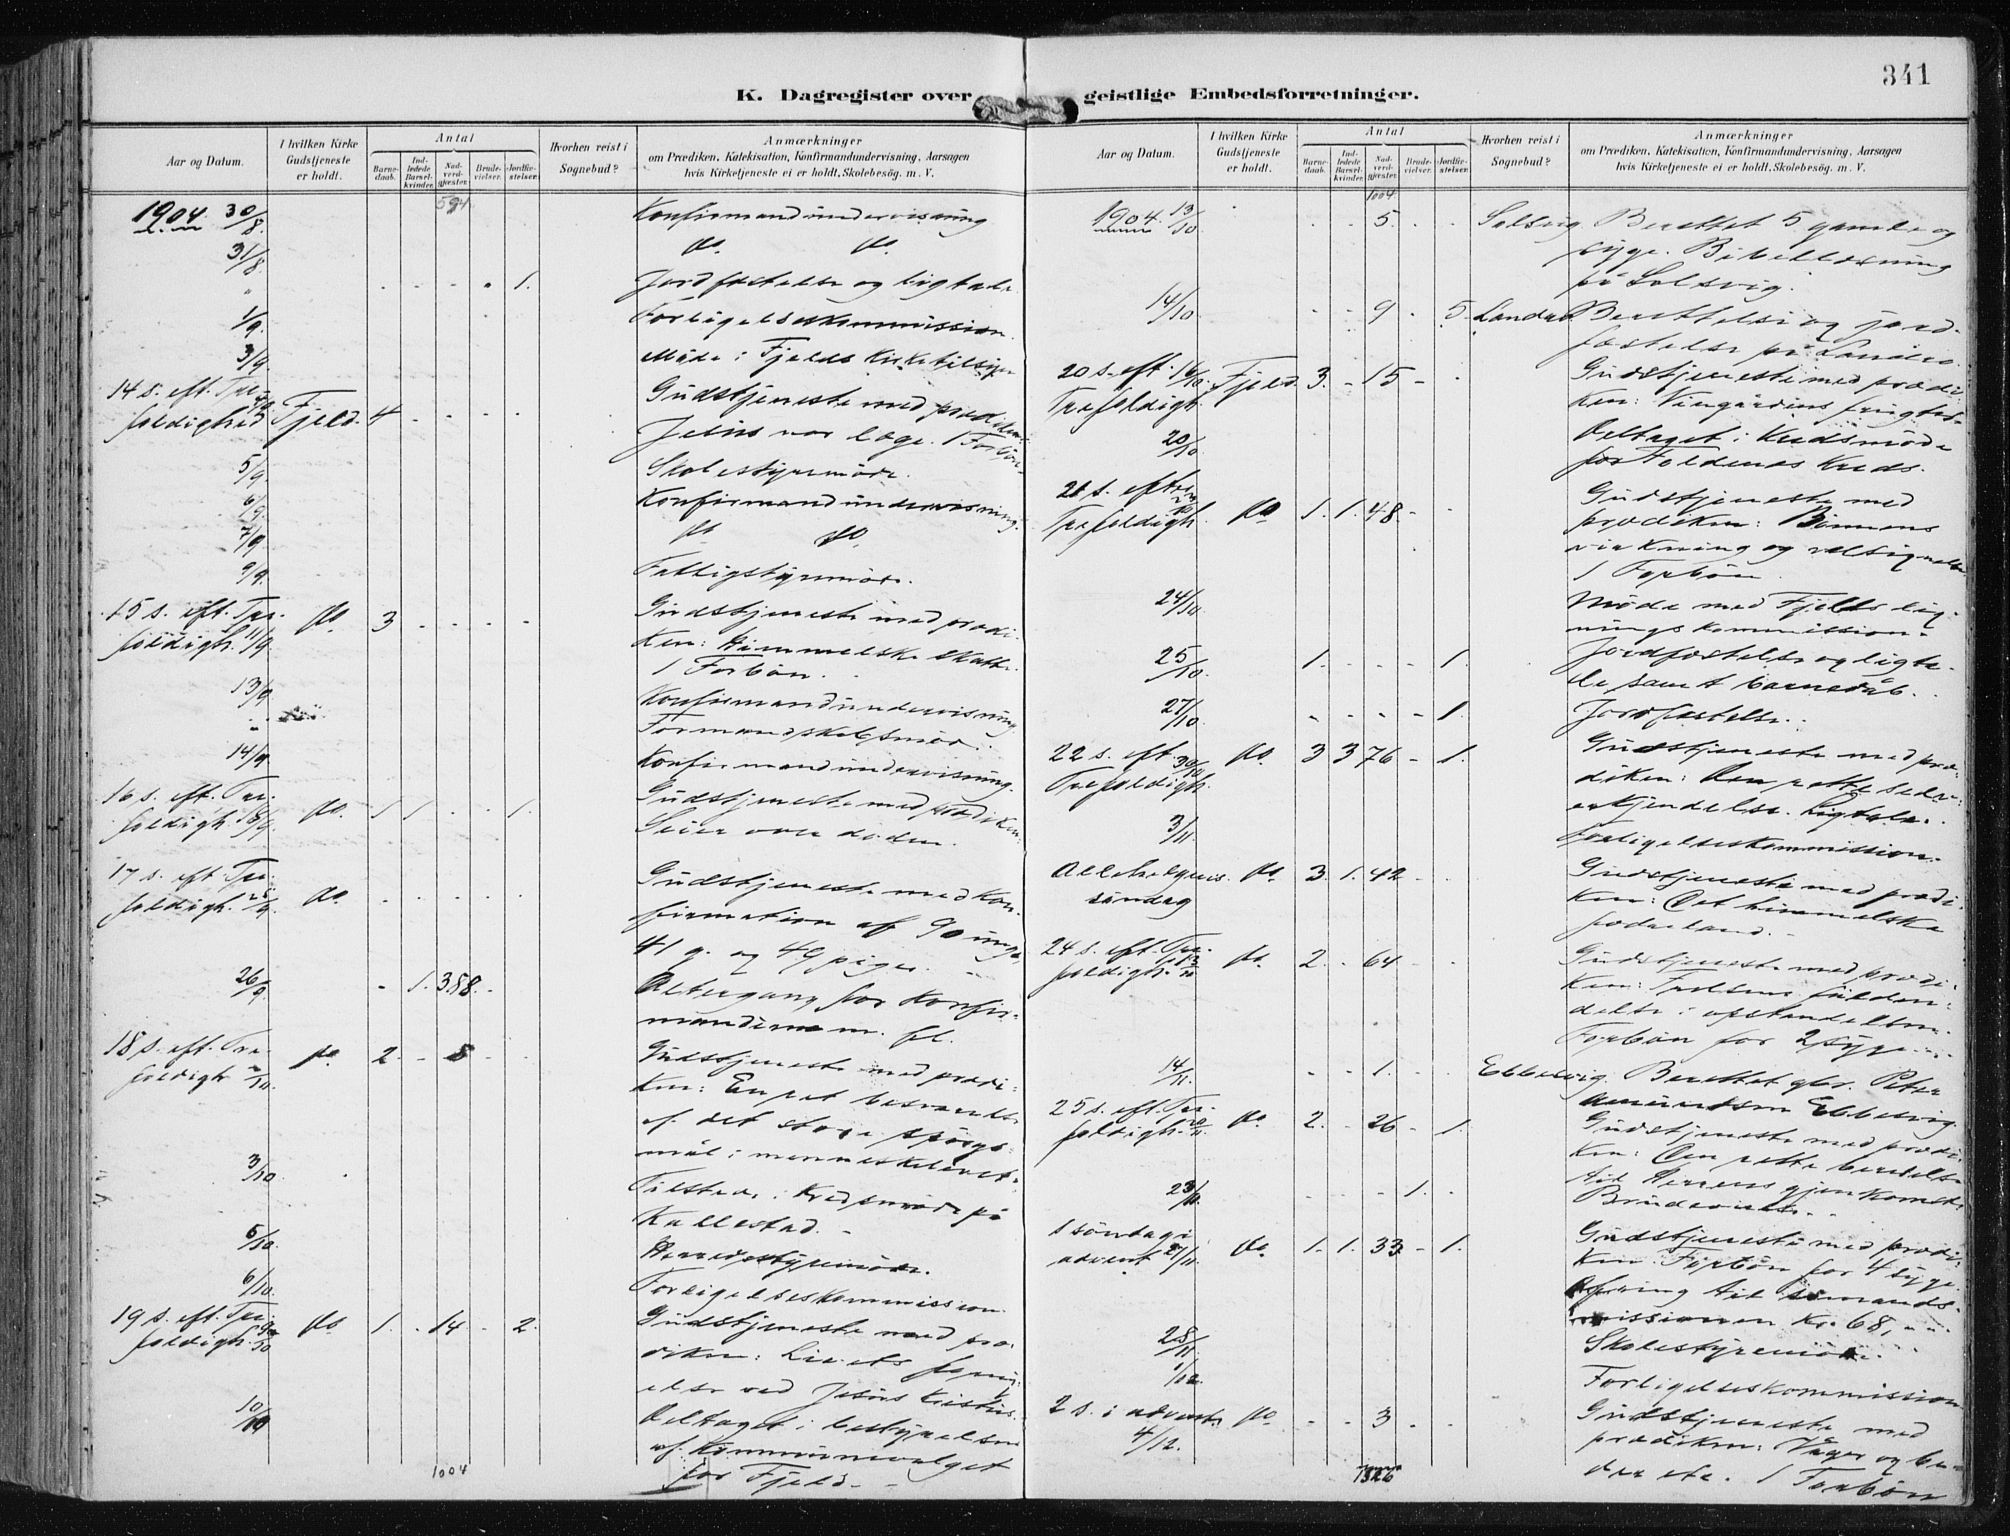 341
K. Dagregister over geistlige Embedsforretninger.
Aar og Datum.
I hvilken Kirke Gudstjeneste er holdt.
Antal
Barnedaab.
Indledede Barselkvinder.
Nadverdgjester.
Brudevielser.
Jordfæstelser.
Hvorhen reist i Sognebud?
Anmærkninger
om Prædiken, Katekisation, Konfirmandundervisning, Aarsagen
hvis Kirketjeneste ei er holdt, Skolebesøg. m. V.
594
1904. 30/8. Konfirmandundervisning
31/8. do. do.
" - - - - 1. Jordfæstelse og ligtale.
1/9. Forligelseskommission.
3/9 Møde i Fjelds Kirketilsyn
14 s. eft. Tre- Gudstjeneste med prædiken:
foldighed Fjeld. 4 - - - - Jesus vor læge. 1 Forbøn.
5/9. Skolestyremøde.
6/9. Konfirmandundervisning.
7/9. do do.
9/9. Fattigstyremøde.
15 s. eft. Tre- do. 3 - - - - Gudstjeneste med prædi-
foldigh. 11/9 ken: Himmelske skatte.
1 Forbøn.
13/9 Konfirmandundervisning.
" Formandskabsmøde.
14/9. Konfirmandundervisning.
16 s. eft. Tre- do. 1 1 - - 1. Gudstjeneste med prædiken:
foldigh. 18/9. Seier over døden.
17 s. eft. Tre- do. - - - - - Gudstjeneste med kon-
foldigh. 25/9. firmation af 90 unge,
41 g. og 49 piger.
26/9 - 1. 388. - Altergang for Konfir-
manderne m. fl.
18 s. eft. Tre- do. 2. - 8 - Gudstjeneste med prædi-
foldigh. 2/10. ken: Enhet besvarelse
af det store spørgs-
mål i menneskelivet.
3/10 Tilstede i Kredsmøde på
Kallestad.
5/10. Herredsstyremøde.
6/10. Forligelseskommission.
19 s. eft. Tre- do 1. - 14 - 2. Gudstjeneste med præ-
foldigh. 9/10 diken: Livets fornyelse
ved Jesus Kristus.
10/10 Deltaget i bestyrelsen
af Kommunevalget
for Fjeld.
1004
Aar og Datum.
I hvilken Kirke Gudstjeneste er holdt.
Antal
Barnedaab.
Indledede Barselkvinder.
Nadverdgjester.
Brudevielser.
Jordfæstelser.
Hvorhen reist i Sognebud?
Anmærkninger
om Prædiken, Katekisation, Konfirmandundervisning, Aarsagen
hvis Kirketjeneste ei er holdt, Skolebesøg. m. V.
1004
1904. 13/10 - - 5. - - Solsvig Berettet 5 gamle og
syge. Bibellæsning
på Solsvig.
14/10. - - 9 - 5. Landro Berettelse og jord-
fæstelse på Landro.
20 s. eft. 16/10. Fjeld. 3. - 15 - - Gudstjeneste med prædi-
Trefoldigh. ken: Vingårdens frugter.
20/10 Deltaget i Kredsmøde
for Foldenæs Kreds.
21 s. eft. 23/10 do 1. 1. 48. - - Gudstjeneste med
Trefoldigh. prædiken: Bønnens
virkning og velsignelse
1 Forbøn.
24/10 Møde med Fjelds lig-
ningskommission.
25/10. 1. - - - 1. Jordfæstelse og ligta-
le samt barnedåb.
27/10. - - - - 1. Jordfæstelse.
22 s. eft. 30/10 do. 3 3 76 - 1. Gudstjeneste med præ-
Trefoldigh. diken: Den rette
erkjendelse. Ligtale.
3/11. Forligelseskommission.
Allehelgens- do. 3. 1. 42 - - Gudstjeneste med prædi-
søndag ken: Det himmelske
fædreland.
24 s. eft. Tre- do. 2. - 64 - - Gudstjeneste med prædi-
foldigh. 13/11 ken: Frelsens fulden-
delse i opstandelsen.
Forbøn for 2 syge.
14/11. - - 1. - - Ebbesvig. Berettet gbr. Peter
Amundsen Ebbesvig.
25 s. eft. Tre- do. 2. - 26 - 1. Gudstjeneste med prædi-
foldigh. 20/11. ken: Den rette beredelse
til Herrens gjenkomst.
23/11. - - - 1. - Brudevielse.
1 søndag i do. 1. 1. 33 - 1. Gudstjeneste med prædi-
advent 27/11. ken. Forbøn for 4 syge.
Ofring til sømands-
missionen Kr. 68,
28/11 Skolestyremøde.
1/12. Forligelseskommission
2 s. i advent do - - 3 - - Gudstjeneste med
4/12. prædiken: Våger og be-
der etc. 1 Forbøn
1326